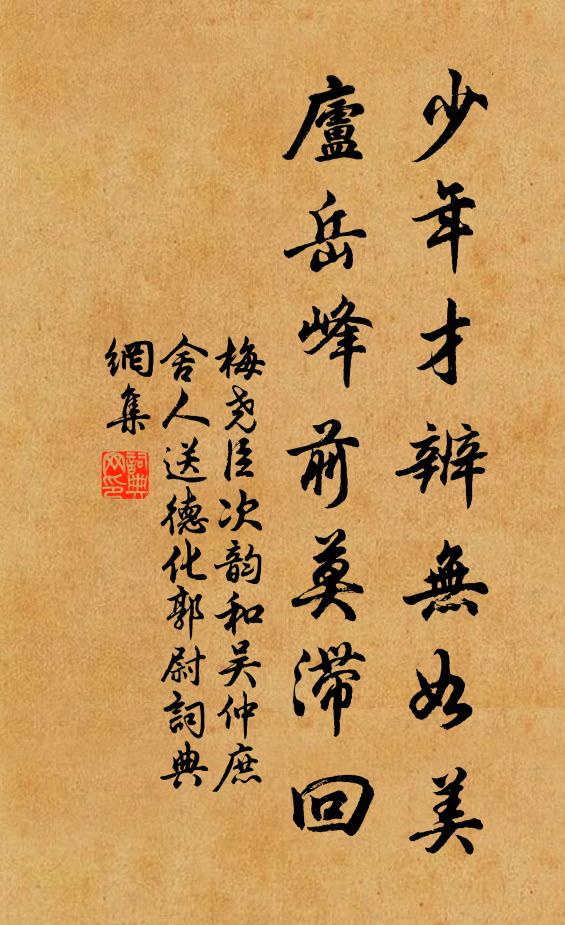 少年才辨無如美
廬岳峰前莫滯回
梅堯臣次韵和吴仲庶
舍人送德化郭尉詞典
網集
詞典網印